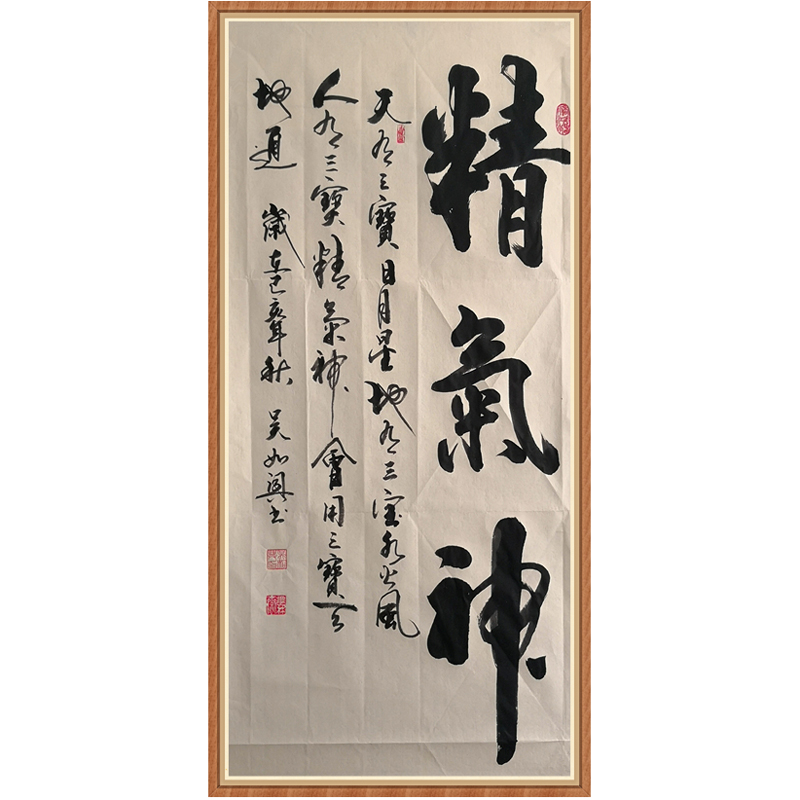 精氣神
天有三寶日月星地有三寶水火風
人有三寶精氣神會用三寶天
地通 歲在己亥年秋 吳如興書